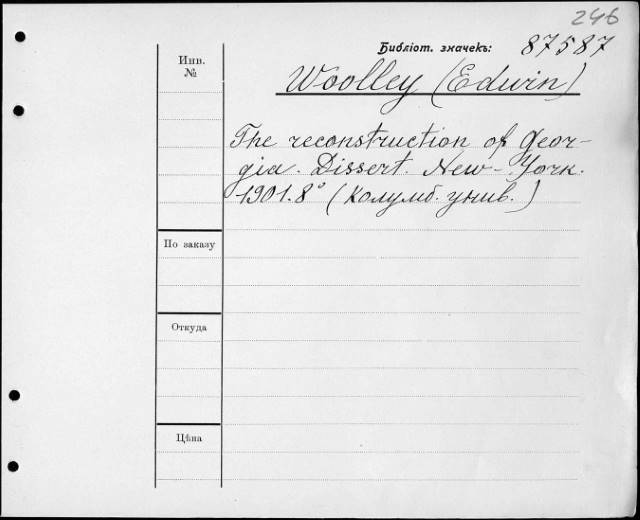 246
Библіот. значекъ: 87587
Инв. №
Woolley (Edwin)
The reconstruction of Geor-
gia. Dissert. New-York.
1901. 8° (Колумб. унив.)
По заказу
Откуда
Цѣна